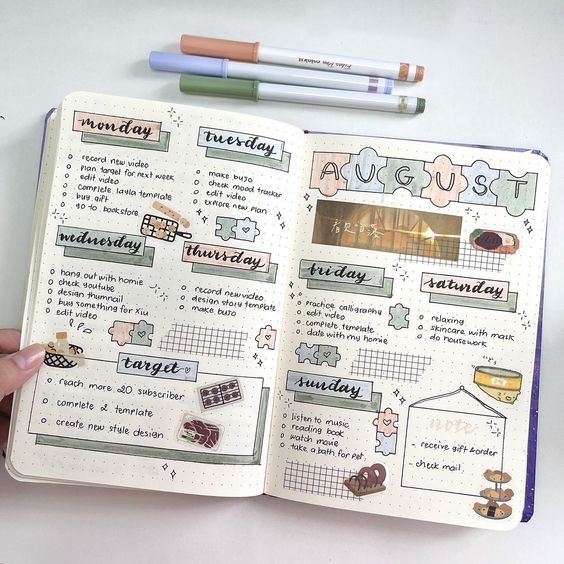 monday
record new video
plan target for next week
edit video
complete layla template
buy gift
go to bookstore
tuesday
make bujo
check mood tracker
edit video
explore new plan
wednesday
hang out with homie
check youtube
design thumnail
buy something for xiu
edit video
thursday
record new video
design story template
make bujo
target
reach more 20 subscriber
complete 2 template
create new style design
AUGUST
friday
practice calligraphy
edit video
complete template
date with my homie
saturday
relaxing
skincare with mask
do housework
sunday
listen to music
reading book
watch movie
take a bath for pet
note
- receive gift & order
- check mail